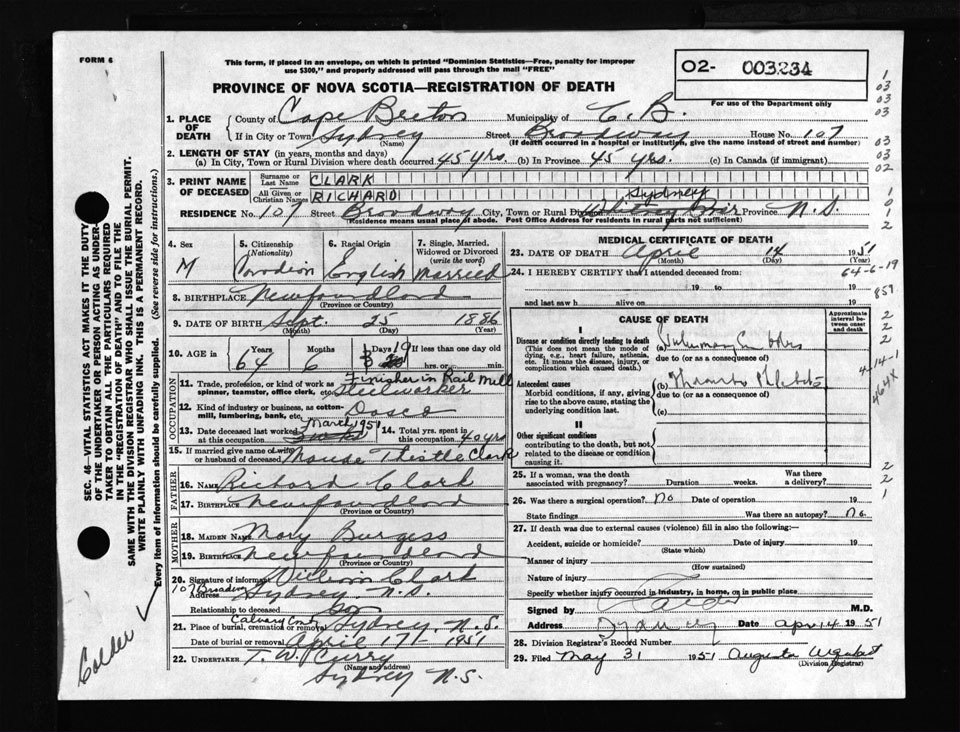 FORM 6
This form, if placed in an envelope, on which is printed "Dominion Statistics—Free, penalty for improper
use $300," and properly addressed will pass through the mail "FREE"
PROVINCE OF NOVA SCOTIA—REGISTRATION OF DEATH
02- 003234
For use of the Department only
1. PLACE OF DEATH County of Cape Breton Municipality of C.B.
If in City or Town Sydney Street Broadway House No. 107
(Name) (If death occurred in a hospital or institution, give the name instead of street and number)
2. LENGTH OF STAY (in years, months and days)
(a) In City, Town or Rural Division where death occurred 45 yrs. (b) In Province 45 yrs. (c) In Canada (if immigrant)
3. PRINT NAME OF DECEASED Surname or Last Name CLARK
All Given or Christian Names RICHARD
Sydney
RESIDENCE No. 107 Street Broadway City, Town or Rural Division Whitney Pier Province N.S.
(Residence means usual place of abode. Post Office Address for residents in rural parts not sufficient)
4. Sex M
5. Citizenship (Nationality) Canadian
6. Racial Origin English
7. Single, Married, Widowed or Divorced (write the word) Married
8. BIRTHPLACE Newfoundland
(Province or Country)
9. DATE OF BIRTH Sept. 25 1886
(Month) (Day) (Year)
10. AGE in Years 64 Months 6 Days 19 If less than one day old
hrs. or min.
OCCUPATION
11. Trade, profession, or kind of work as spinner, teamster, office clerk, etc. Finisher in Rail Mill
Steelworker
12. Kind of industry or business, as cotton-mill, lumbering, bank, etc. Dosco
13. Date deceased last worked at this occupation March 1951
14. Total yrs. spent in this occupation 40 yrs
15. If married give name of wife or husband of deceased Maude Thistle Clark
FATHER
16. NAME Richard Clark
17. BIRTHPLACE Newfoundland
(Province or Country)
MOTHER
18. MAIDEN NAME Mary Burgess
19. BIRTHPLACE Newfoundland
(Province or Country)
20. Signature of informant William Clark
Address 107 Broadway Sydney, N.S.
Relationship to deceased Son
21. Place of burial, cremation or removal Calvary Cmty Sydney, N.S.
Date of burial or removal April 17 1951
22. UNDERTAKER T. W. Curry
(Name and address)
Sydney N.S.
MEDICAL CERTIFICATE OF DEATH
23. DATE OF DEATH April 14 1951
(Month) (Day) (Year)
64-6-19
24. I HEREBY CERTIFY that I attended deceased from:
19 to 19
859
and last saw h alive on 19
CAUSE OF DEATH
Approximate interval between onset and death
I
Disease or condition directly leading to death
(This does not mean the mode of dying, e.g., heart failure, asthenia, etc. It means the disease, injury, or complication which caused death.)
(a) Pulmonary Embolus
due to (or as a consequence of)
Antecedent causes
Morbid conditions, if any, giving rise to the above cause, stating the underlying condition last.
(b) Thrombo Phlebitis
due to (or as a consequence of)
(c)
II
Other significant conditions
contributing to the death, but not related to the disease or condition causing it.
4-14-1
25. If a woman, was the death associated with pregnancy? Duration weeks. Was there a delivery?
26. Was there a surgical operation? No Date of operation 19
State findings Was there an autopsy? No
27. If death was due to external causes (violence) fill in also the following:—
Accident, suicide or homicide? Date of injury 19
(State which)
Manner of injury
(How sustained)
Nature of injury
Specify whether injury occurred in industry, in home, or in public place
Signed by Calder M.D.
Address Sydney Date Apr 14 1951
28. Division Registrar's Record Number
29. Filed May 31 1951 Augusta Urquhart
(Division Registrar)
SEC. 46—VITAL STATISTICS ACT MAKES IT THE DUTY
OF THE UNDERTAKER OR PERSON ACTING AS UNDERTAKER
TO OBTAIN ALL THE PARTICULARS REQUIRED
IN THE "REGISTRATION OF DEATH" AND TO FILE THE
SAME WITH THE DIVISION REGISTRAR WHO SHALL ISSUE THE BURIAL PERMIT.
WRITE PLAINLY WITH UNFADING INK. THIS IS A PERMANENT RECORD.
Every item of information should be carefully supplied. (See reverse side for instructions.)
Calder